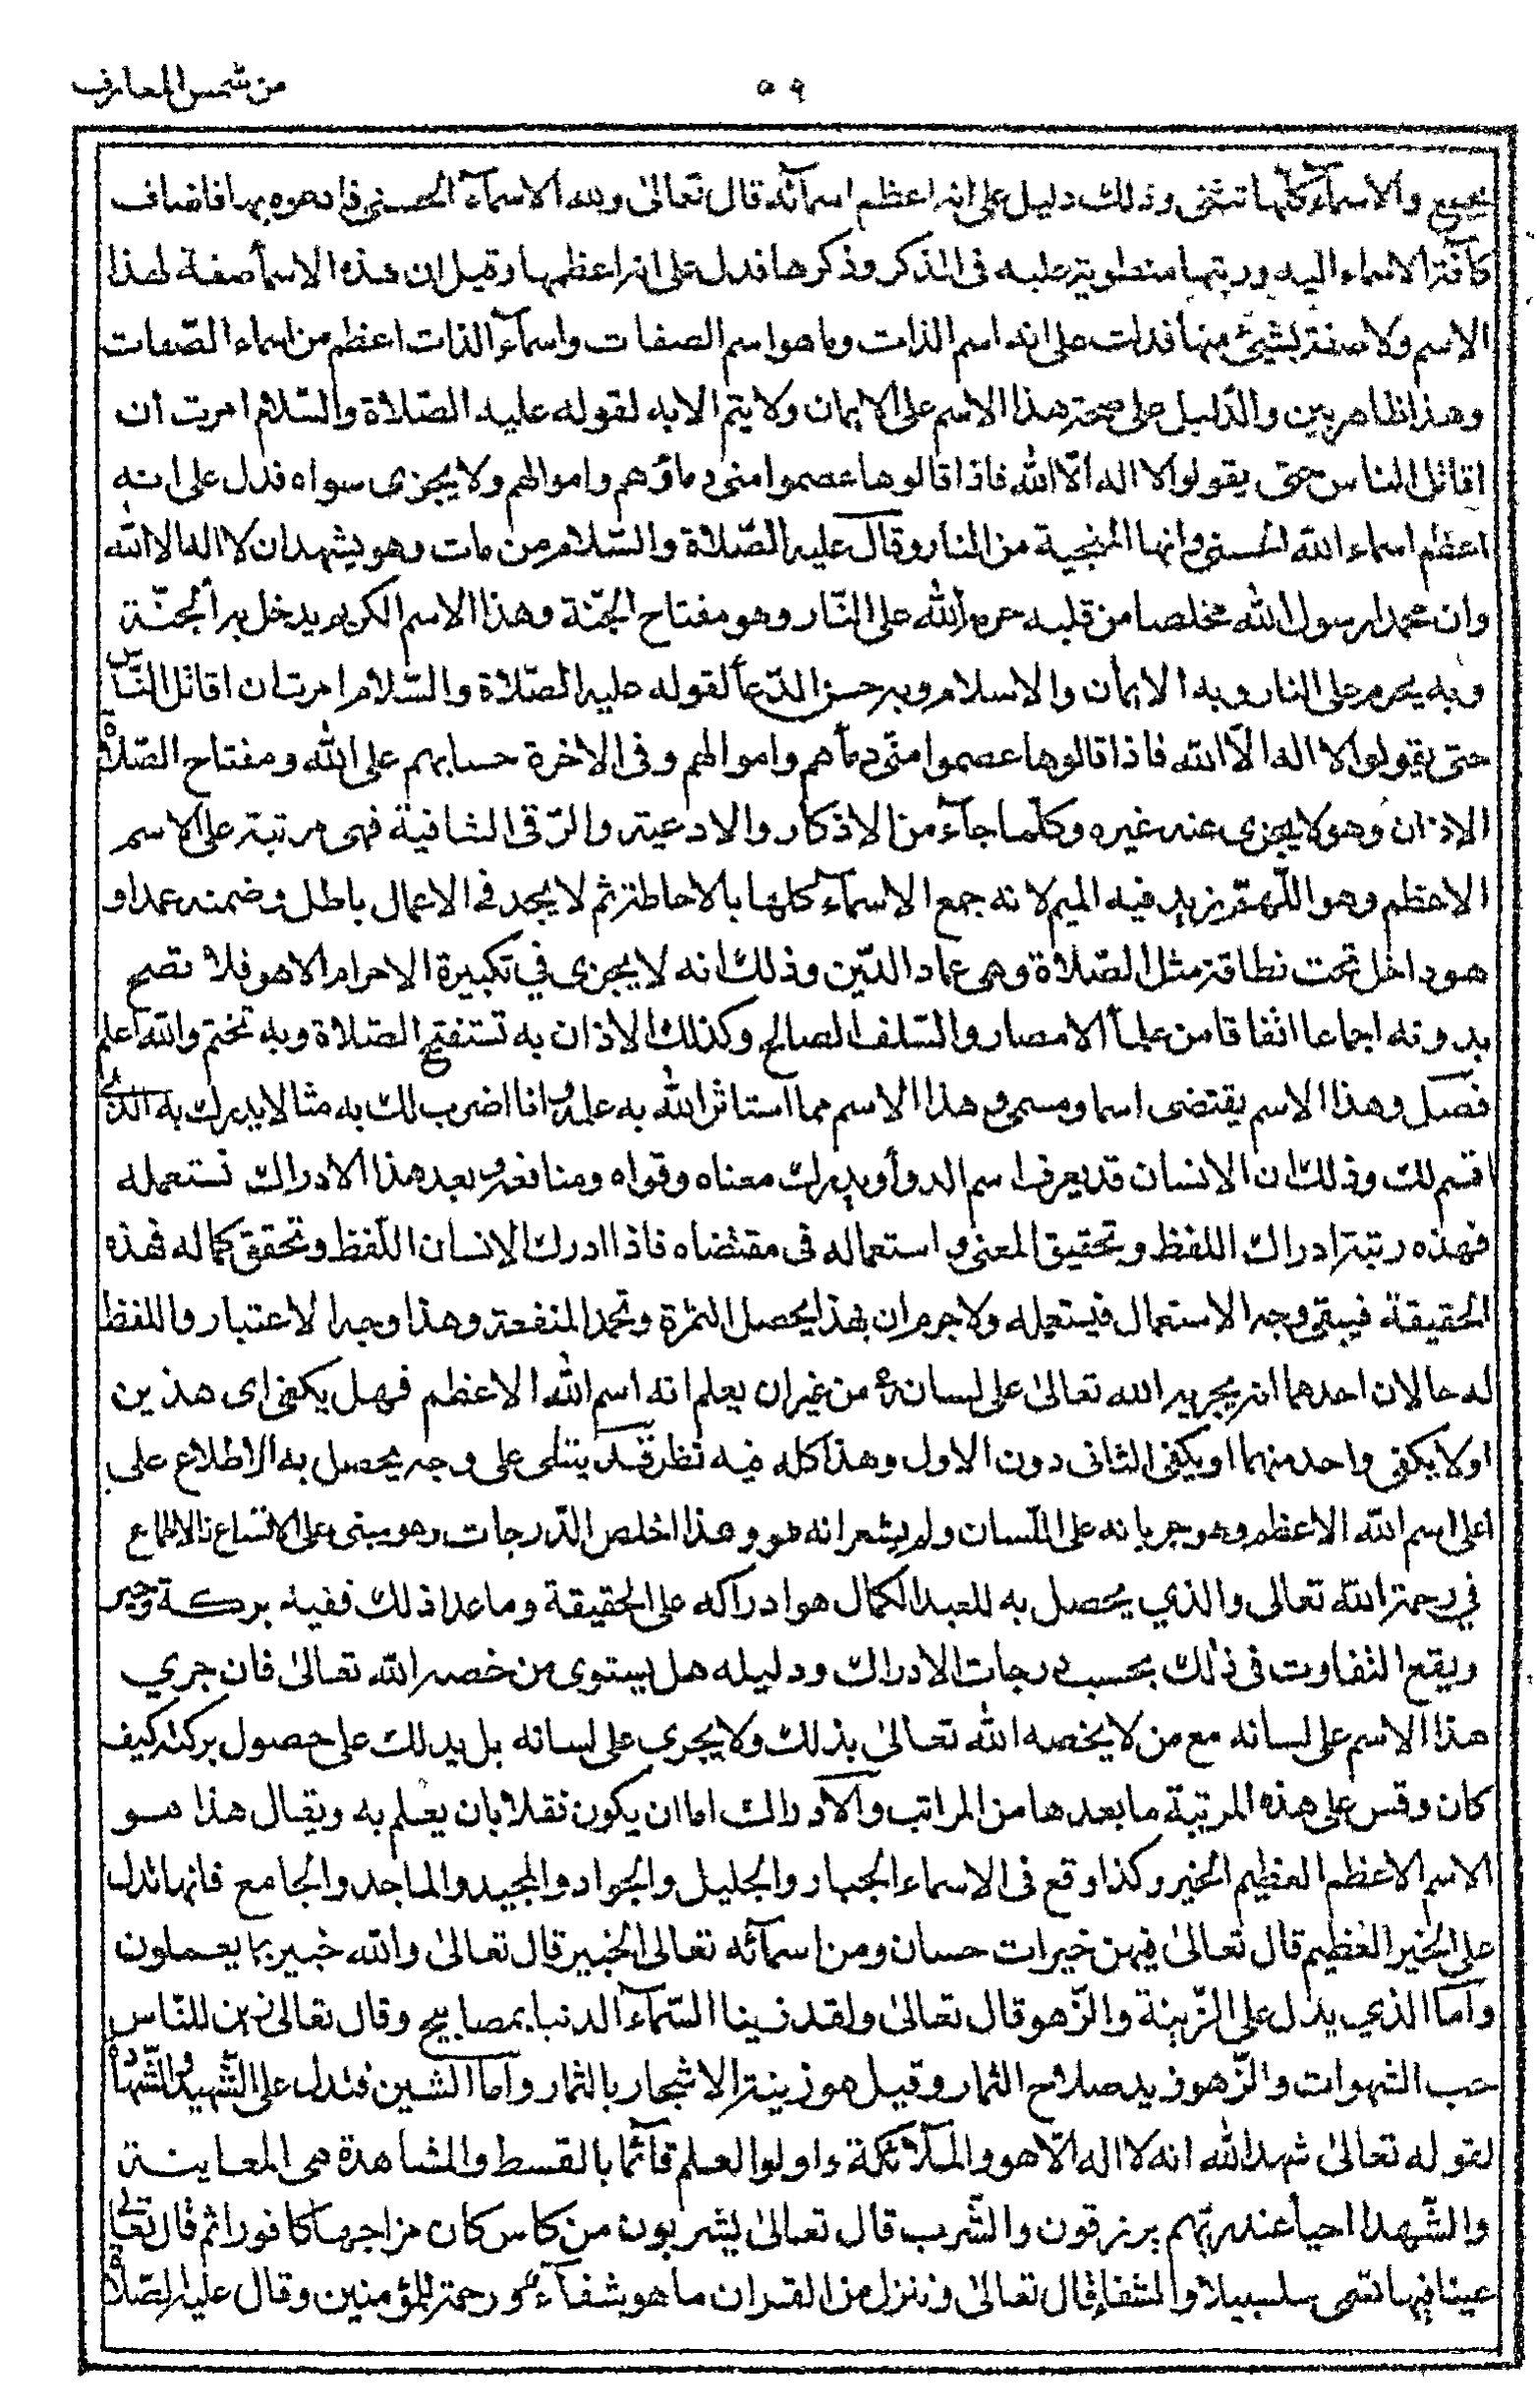 من شمس المعارف
٥٩
يجمع والاسمآء كلّها تثنى وذلك دليل على انه اعظم اسمائه قال تعالى ولله الاسمآء الحسنى فادعوه بها فاضاف
كآفة الاسماء اليه ورتبتها منطوية عليه فى الذكر وذكرها فدل على انه اعظمها وقيل ان هذه الاسمأ صفة لهذا
الاسم ولا صفة بشيئ منها فدلت على انه اسم الذات وما هو اسم الصفات واسمآء الذات اعظم من اسماء الصّفات
وهذا ظاهر بين والدّليل على صحة هذا الاسم على الايمان ولا يتم الا به لقوله عليه الصّلاة والسّلام امرت ان
اقاتل الناس حتى يقولوا لا اله الّا الله فاذا قالوها عصموا منى دماؤهم واموالهم ولا يجزى سواه فدل على انه
اعظم اسماء الله الحسنى وانها المنجية من النار وقال عليه الصّلاة والسّلام من مات وهو يشهد ان لا اله الا الله
وان محمدا رسول الله مخلصا من قلبه حرمه الله على النّار وهو مفتاح الجنّة وهذا الاسم الكريم يدخل به الجنّة
وبه يحرم على النار وبه الايمان والاسلام وبه حسن الدّعأ لقوله عليه الصّلاة والسّلام امرت ان اقاتل النّاس
حتى يقولوا لا اله الّا الله فاذا قالوها عصموا منّى دمأهم واموالهم وفى الاخرة حسابهم على الله ومفتاح الصّلاة
الاذان وهو لا يجزى عنه غيره وكلّما جآء من الاذكار والادعية والرّقى الشافية فهى مرتبة على الاسم
الاعظم وهو اللّهمّ زيد فيه الميم لانه جمع الاسمآء كلها بالاحاطة ثم لا يجد فى الاعمال باطل وضمنه عمدا و
هو داخل تحت نطاقة مثل الصّلاة وهى عماد الدّين وذلك انه لا يجزى في تكبيرة الاحرام الا هو فلا تصح
بدونه اجماعا اتفاقا من علمأ الامصار والسّلف الصالح وكذلك الاذان به تستفتح الصّلاة وبه تختم والله اعلم
فصل وهذا الاسم يقتضى اسما ومسمى وهذا الاسم مما استاثر الله به علمه وانا اضرب لك به مثالا يدرك به الذي
اقسم لك وذلك ان الانسان قد يعرف اسم الدوأ ويدرك معناه وقواه ومنافعه وبعد هذا الادراك تستعمله
فهذه رتبة ادراك اللفظ وتحقيق المعنى واستعماله فى مقتضاه فاذا ادرك الانسان اللّفظ وتحقق كماله فهذه
الحقيقة فيبقى وجه الاستعمال فيستعمله ولا جرم ان بهذا يحصل الثمرة وتحمد المنفعة وهذا وجه الاعتبار واللفظ
له حالان احدهما انه يجريه الله تعالى على لسانه من غير ان يعلم انه اسم الله الاعظم فهل يكفى اى هذين
اولا يكفى واحد منهما او يكفى الثانى دون الاول وهذا كله فيه نظر قد يتلى على وجه يحصل به الاطلاع على
اعلى اسم الله الاعظم وهو جريانه على اللّسان ولم يشعر انه هو وهذا اخلص الدّرجات وهو مبنى على الاتساع
في رحمة الله تعالى والذي يحصل به للعبد الكمال هو ادراكه على الحقيقة وما عدا ذلك ففيه بركة وخير
ويقع التفاوت فى ذلك بحسب درجات الادراك ودليله هل يستوى من خصه الله تعالى فان جري
هذا الاسم على لسانه مع من لا يخصه الله تعالى بذلك ولا يجرى على لسانه بل يدلك على حصول بركته كيف
كان وقس على هذه المرتبة ما بعدها من المراتب والادراك اما ان يكون نقلا بان يعلم به ويقال هذا هو
الاسم الاعظم العظيم الخير وكذا وقع فى الاسماء الجبار والجليل والجواد والمجيد والماجد والجامع فانها تدل
على الخير العظيم قال تعالى فيهن خيرات حسان ومن اسمآئه تعالى الخبير قال تعالى والله خبير بما يعملون
وامّا الذي يدل على الزّينة والزّهو قال تعالى ولقد زينا السّمآء الدنيا بمصابيح وقال تعالى زين للنّاس
حب الشهوات والزّهو زيد صلاح الثمار وقيل هو زينة الاشجار بالثمار وامّا الشين فتدل على الشّهيد والشّهادة
لقوله تعالى شهد الله انه لا اله الّا هو والملآئكة واولوا العلم قآئما بالقسط والمشاهدة هى المعاينة
والشّهدا احيأ عند ربّهم يرزقون والشّرب قال تعالى يشربون من كاس كان مزاجها كافورا ثم قال تعالى
عينا فيها تسمى سلسبيلا والشفاء قال تعالى وننزل من القران ما هو شفآء ورحمة للمؤمنين وقال عليه الصّلاة